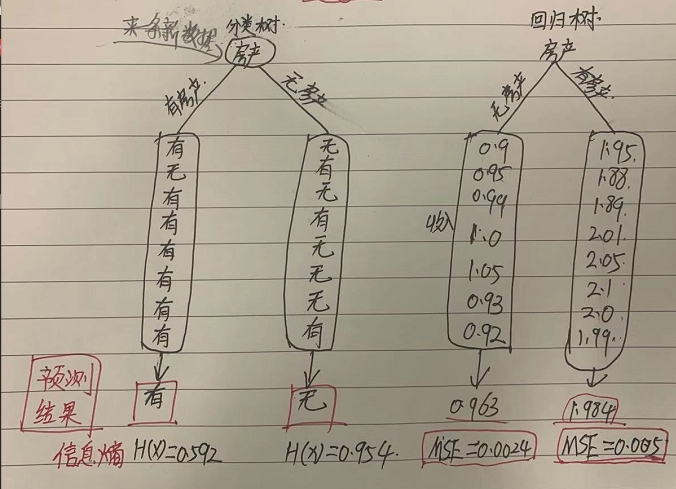 来条新数据
分类树.
房产
有房产.
无房产
有
无
有
有
有
有
有
有
无
有
无
有
无
无
无
有
预测
结果
有
无
信息熵 H(X)=0.592 H(X)=0.954.
回归树.
房产
无房产
有房产.
收入
0.9
0.95
0.99
1.0
1.05
0.93
0.92
1.95.
1.88.
1.89.
2.01.
2.05.
2.1
2.0.
1.99.
0.963
1.984
MSE=0.0024
MSE=0.005